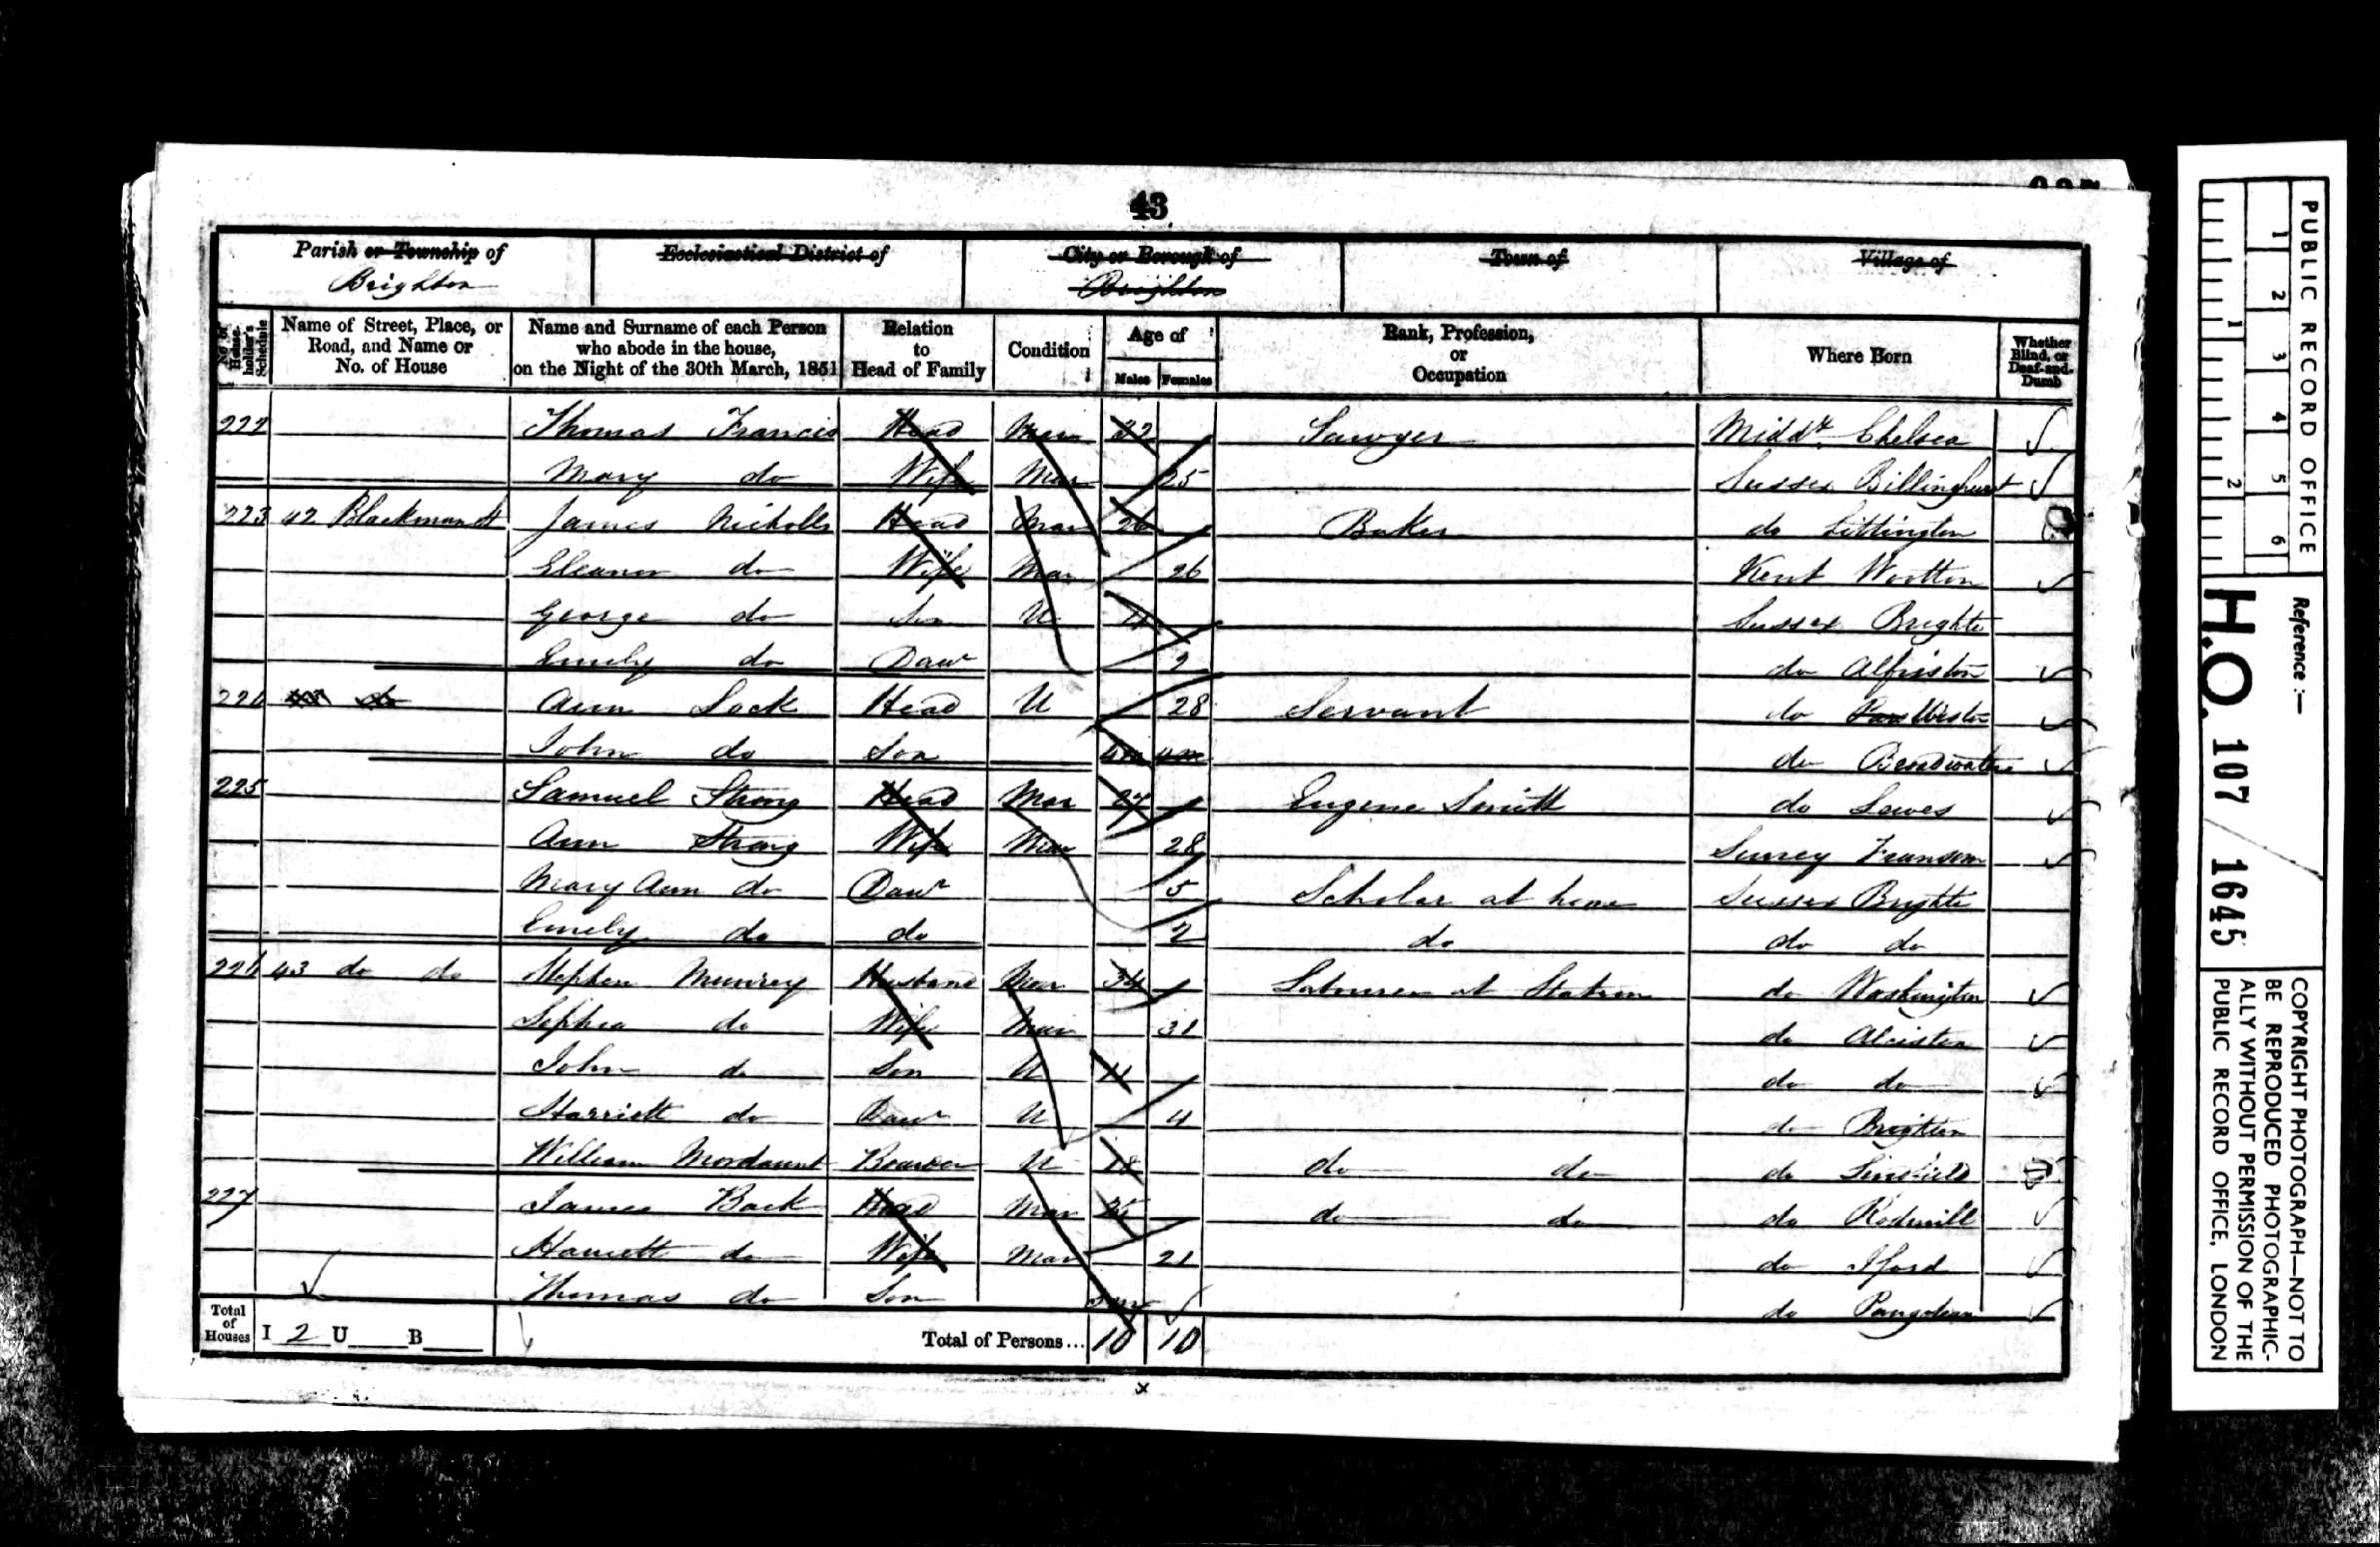 43
Parish or Township of Brighton
Ecclesiastical District of
City or Borough of Brighton
Town of
Village of
No. of House-holder's Schedule
Name of Street, Place, or Road, and Name or No. of House
Name and Surname of each Person who abode in the house, on the Night of the 30th March, 1851
Relation to Head of Family
Condition
Age of
Males
Females
Rank, Profession, or Occupation
Where Born
Whether Blind, or Deaf-and-Dumb
222 Thomas Francis Head Mar 32 Sawyer Middx Chelsea
Mary do Wife Mar 25 Sussex Billinghurst
223 42 Blackman St James Nicholls Head Mar 26 Baker do Littington
Eleanor do Wife Mar 26 Kent Wootton
George do Son U 4 Sussex Brighton
Emily do Daur 2 do Alfriston
224 do Ann Lock Head U 28 Servant do
John do Son 4m 4m do Broadwater
225 Samuel Strong Head Mar 27 Engine Smith do Lewes
Ann Strong Wife Mar 28 Surrey
Mary Ann do Daur 5 Scholar at home Sussex Brighton
Emily do do 2 do do do
226 43 do do Stephen Munrey Husband Mar 34 Labourer at Station do Washington
Sophia do Wife Mar 31 do Alciston
John do Son U 11 do do
Harriett do Daur U 4 do Brighton
William Mordaunt Boarder U 18 do do do
227 James Back Head Mar 25 do do do Rodmill
Harriett do Wife Mar 21 do Iford
Thomas do Son do
Total of Houses I 2 U B
Total of Persons... 10 10
PUBLIC RECORD OFFICE
1 2 3 4 5 6
1 2
Reference :—
H.O. 107 / 1645
COPYRIGHT PHOTOGRAPH—NOT TO BE REPRODUCED PHOTOGRAPHIC-
ALLY WITHOUT PERMISSION OF THE
PUBLIC RECORD OFFICE, LONDON